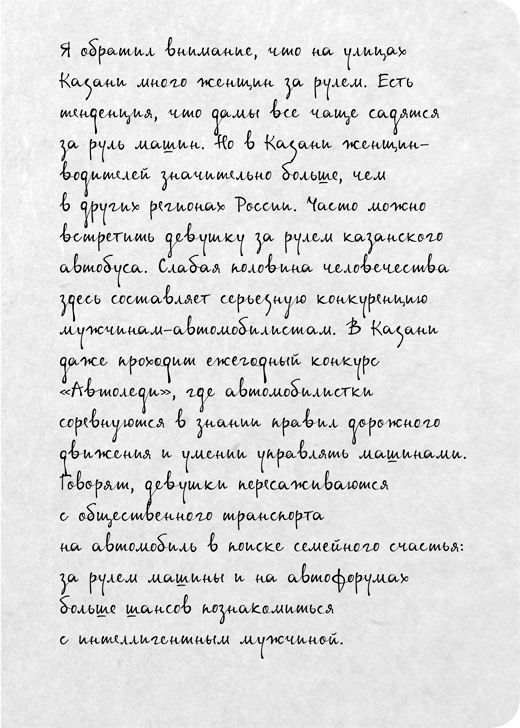 Я обратил внимание, что на улицах
Казани много женщин за рулем. Есть
тенденция, что дамы все чаще садятся
за руль машин. Но в Казани женщин-
водителей значительно больше, чем
в других регионах России. Часто можно
встретить девушку за рулем казанского
автобуса. Слабая половина человечества
здесь составляет серьезную конкуренцию
мужчинам-автомобилистам. В Казани
даже проходит ежегодный конкурс
«Автоледи», где автомобилистки
соревнуются в знании правил дорожного
движения и умении управлять машинами.
Говорят, девушки пересаживаются
с общественного транспорта
на автомобиль в поиске семейного счастья:
за рулем машины и на автофорумах
больше шансов познакомиться
с интеллигентным мужчиной.